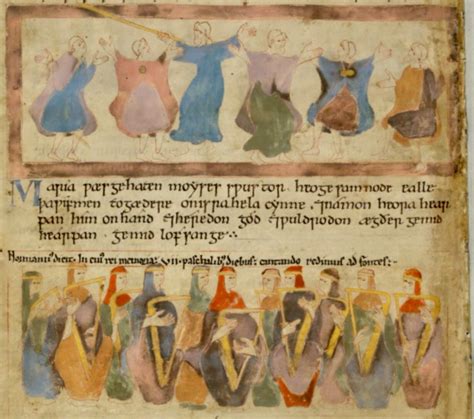 Maria wæs gehaten moyses swustor. heo gesamnode ealle
þa wifmen togædere on israhela cynne. ⁊ namon heora hear
pan him on hand ⁊ heredon god ⁊ wuldrodon ægðer ge mid
hearpan ge mid lofsange
In cui' rei memoria .vii. paschalib; dieb; cantando redimus ad fontes:-